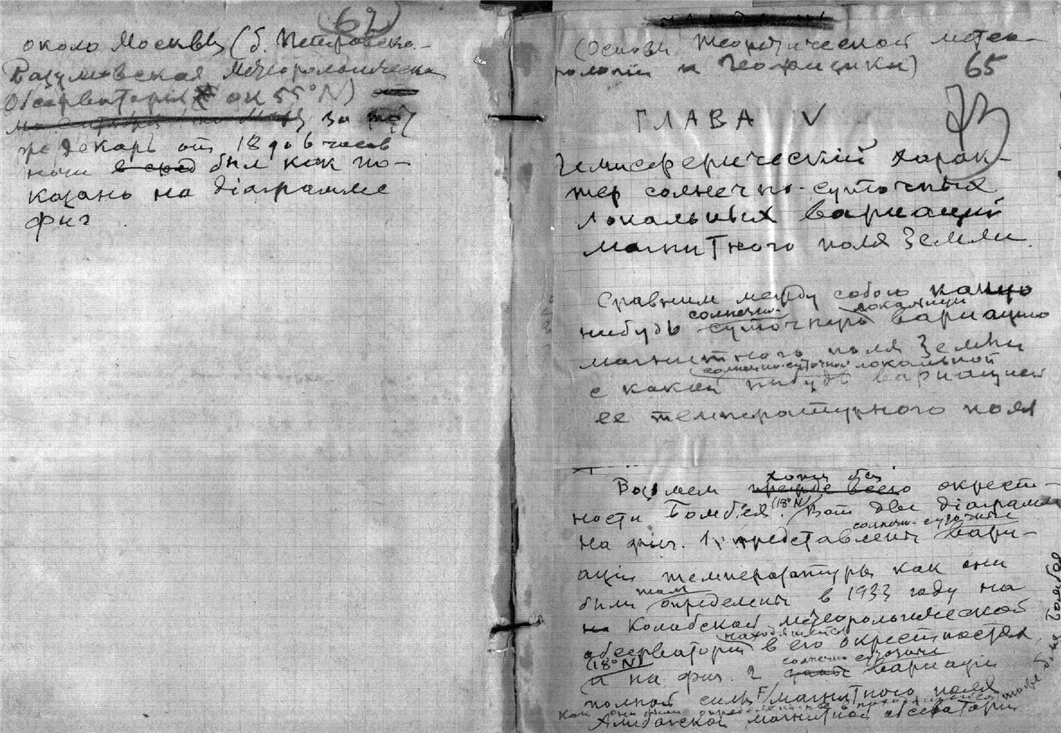 62
около Москвы (б. Петровско-
Разумовская Метеорологическая
Обсерватория ок 55°N)
за
же декабрь от 18 до 6 часов
ночи был как по-
казано на діаграмме
фиг.
(Основы теоретической метео-
рологіи и Геофизики) 65
73
ГЛАВА V
Гемисферическій харак-
тер солнечно-суточных
локальных вариацій
магнитного поля Земли.
Сравним между собою какую
солнечно- локальную
нибудь суточную вариацию
магнитного поля Земли
солнечно-суточной локальной
с какой нибудь вариацией
ее температурного поля
хотя бы
Возьмем прежде всего окрест-
ности Бомбея (18°N). Вот две діаграммы
солнечно-суточные
На фиг. 1 представлены вари-
аціи температуры как они
там
были определены в 1933 году на
на Колабской метеорологической
находящейся
обсерваторіи в его окрестностях
(18°N) солнечно суточные
и на фиг. 2 вариаціи
полной силы F магнитного поля
как они были определены
Алибагской магнитной обсерваторіи